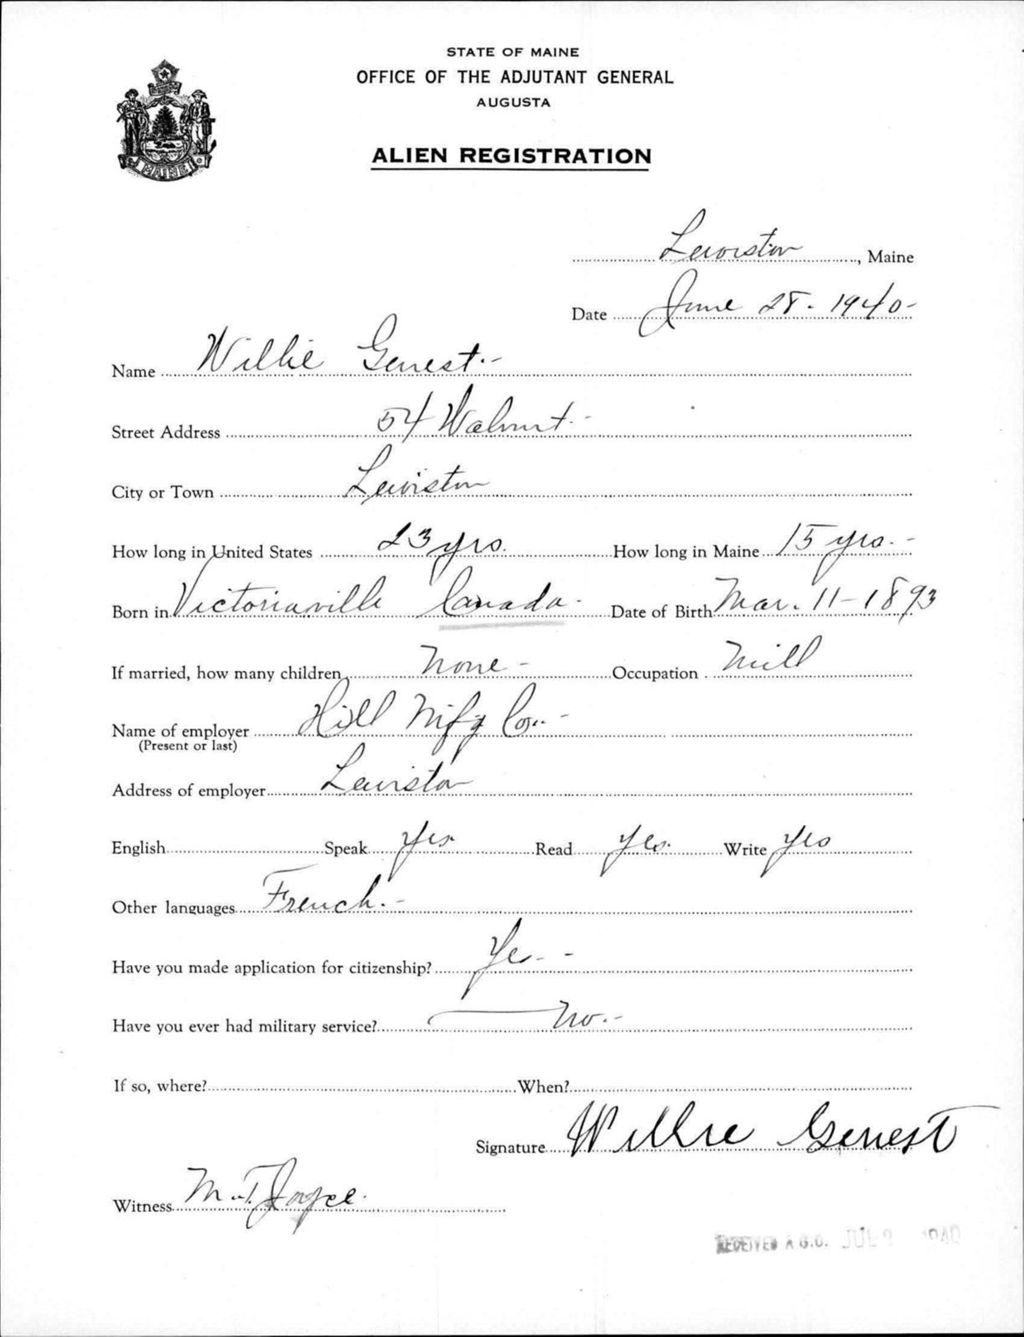 STATE OF MAINE
OFFICE OF THE ADJUTANT GENERAL
AUGUSTA
ALIEN REGISTRATION
MAINE
Lewiston, Maine
Date June 28 - 1940 -
Name Willie Genest. -
Street Address 54 Walnut -
City or Town Lewiston
How long in United States 23 yrs. How long in Maine 15 yrs. -
Born in Victoriaville Canada - Date of Birth Mar. 11 - 1893
If married, how many children None - Occupation Mill
Name of employer Hill Mfg Co. -
(Present or last)
Address of employer Lewiston
English Speak Yes Read Yes. Write Yes
Other languages French. -
Have you made application for citizenship? Yes - -
Have you ever had military service? No. -
If so, where? When?
Signature Willie Genest
Witness M. T. Joyce.
RECEIVED A.G.O. JUL 1940